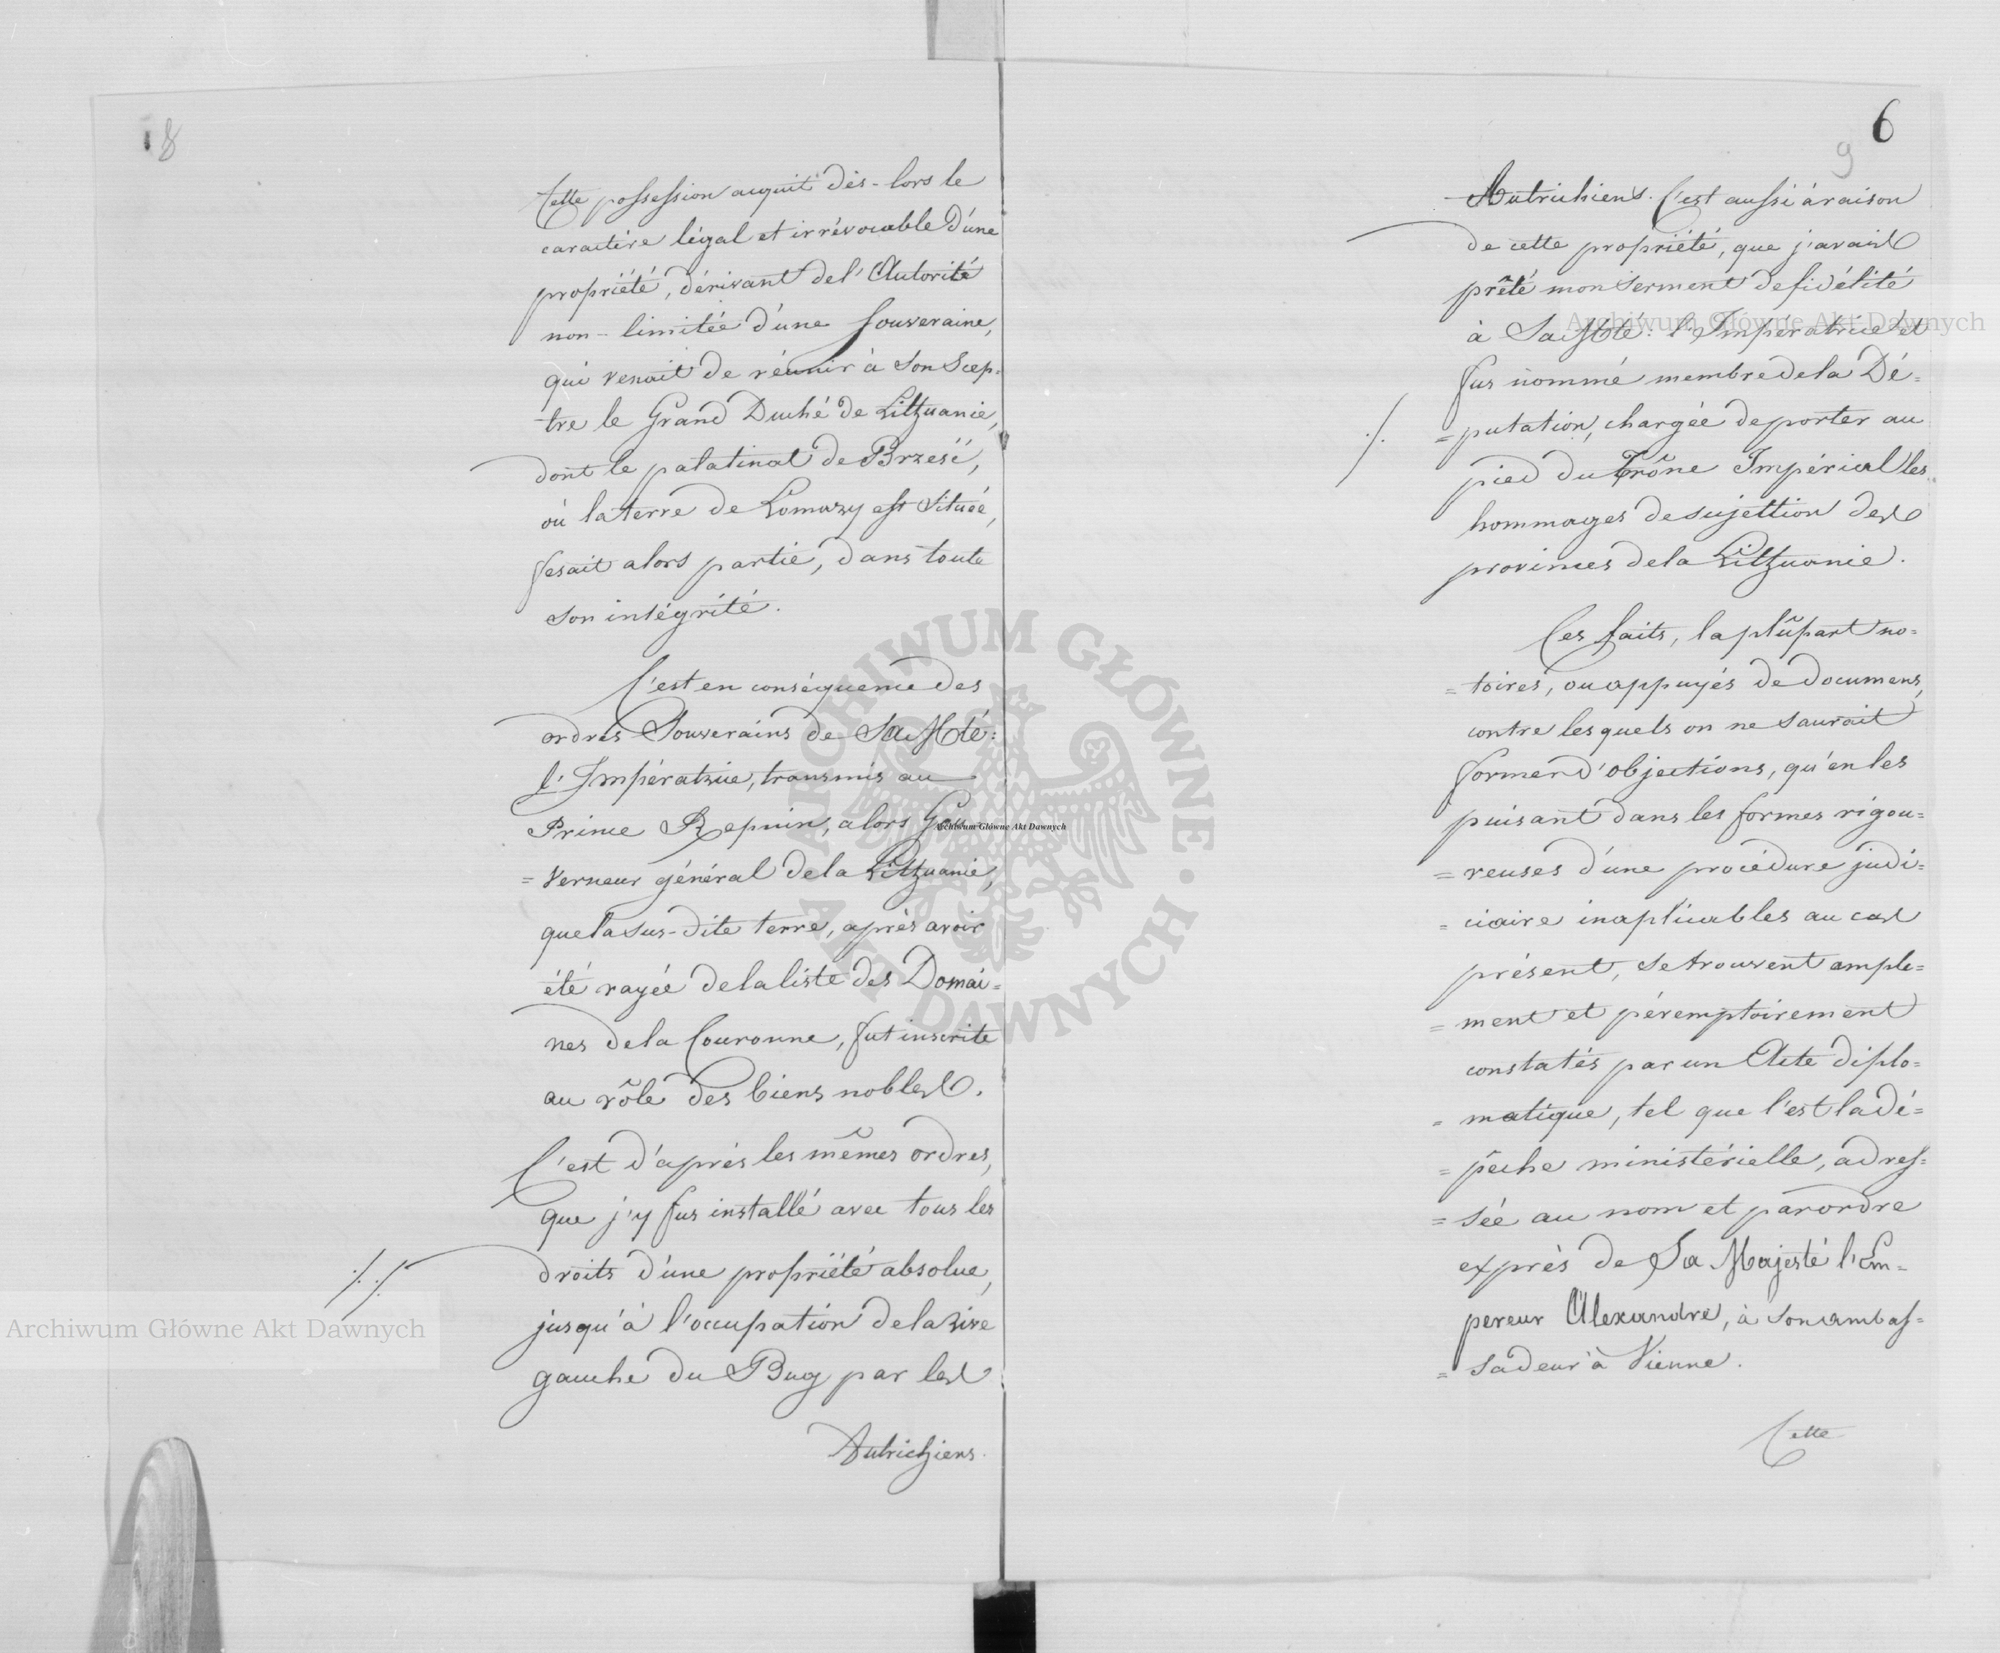 8
Cette possession acquit dès-lors le
caractère légal et irrévocable d'une
propriété, dérivant de l'Autorité
non-limitée d'une Souveraine,
qui venait de réunir à son Scep-
tre le Grand Duché de Litthuanie,
dont le palatinat de Brześć,
où la terre de Łomazy est située,
fesait alors partie, dans toute
son intégrité.
C'est en conséquence des
ordres Souverains de Sa Mté:
l'Impératrice, transmis au
Prince Repnin, alors Gou-
= verneur général de la Litthuanie,
que la sus-dite terre, après avoir
été rayée de la liste des Domai=
nes de la Couronne, fut inscrite
au rôle des biens nobles.
C'est d'après les mêmes ordres,
que j'y fus installé avec tous les
droits d'une propriété absolue,
jusqu'à l'occupation de la rive
gauche du Bug par les
Autrichiens.
6
9
Autrichiens. C'est aussi à raison
de cette propriété, que j'avais
prêté mon serment de fidélité
à Sa Mté: l'Impératrice et
fus nommé membre de la Dé=
= putation, chargée de porter au
pied du Trône Impérial les
hommages de sujettion des
provinces de la Litthuanie.
Ces faits, la plûpart no=
= toires, ou appuyés de documens,
contre lesquels on ne saurait
former d'objections, qu'en les
puisant dans les formes rigou=
= reuses d'une procédure judi=
= ciaire inaplicables au cas
présent, se trouvent ample=
= ment et péremptoirement
constatés par un Acte diplo=
= matique, tel que l'est la dé=
= pêche ministérielle, adres=
= sée au nom et par ordre
exprès de Sa Majesté l'Em=
pereur Alexandre, à son ambas=
= sadeur à Vienne.
Cette
Archiwum Główne Akt Dawnych
Archiwum Główne Akt Dawnych
Archiwum Główne Akt Dawnych
ARCHIWUM GŁÓWNE · AKT DAWNYCH ·